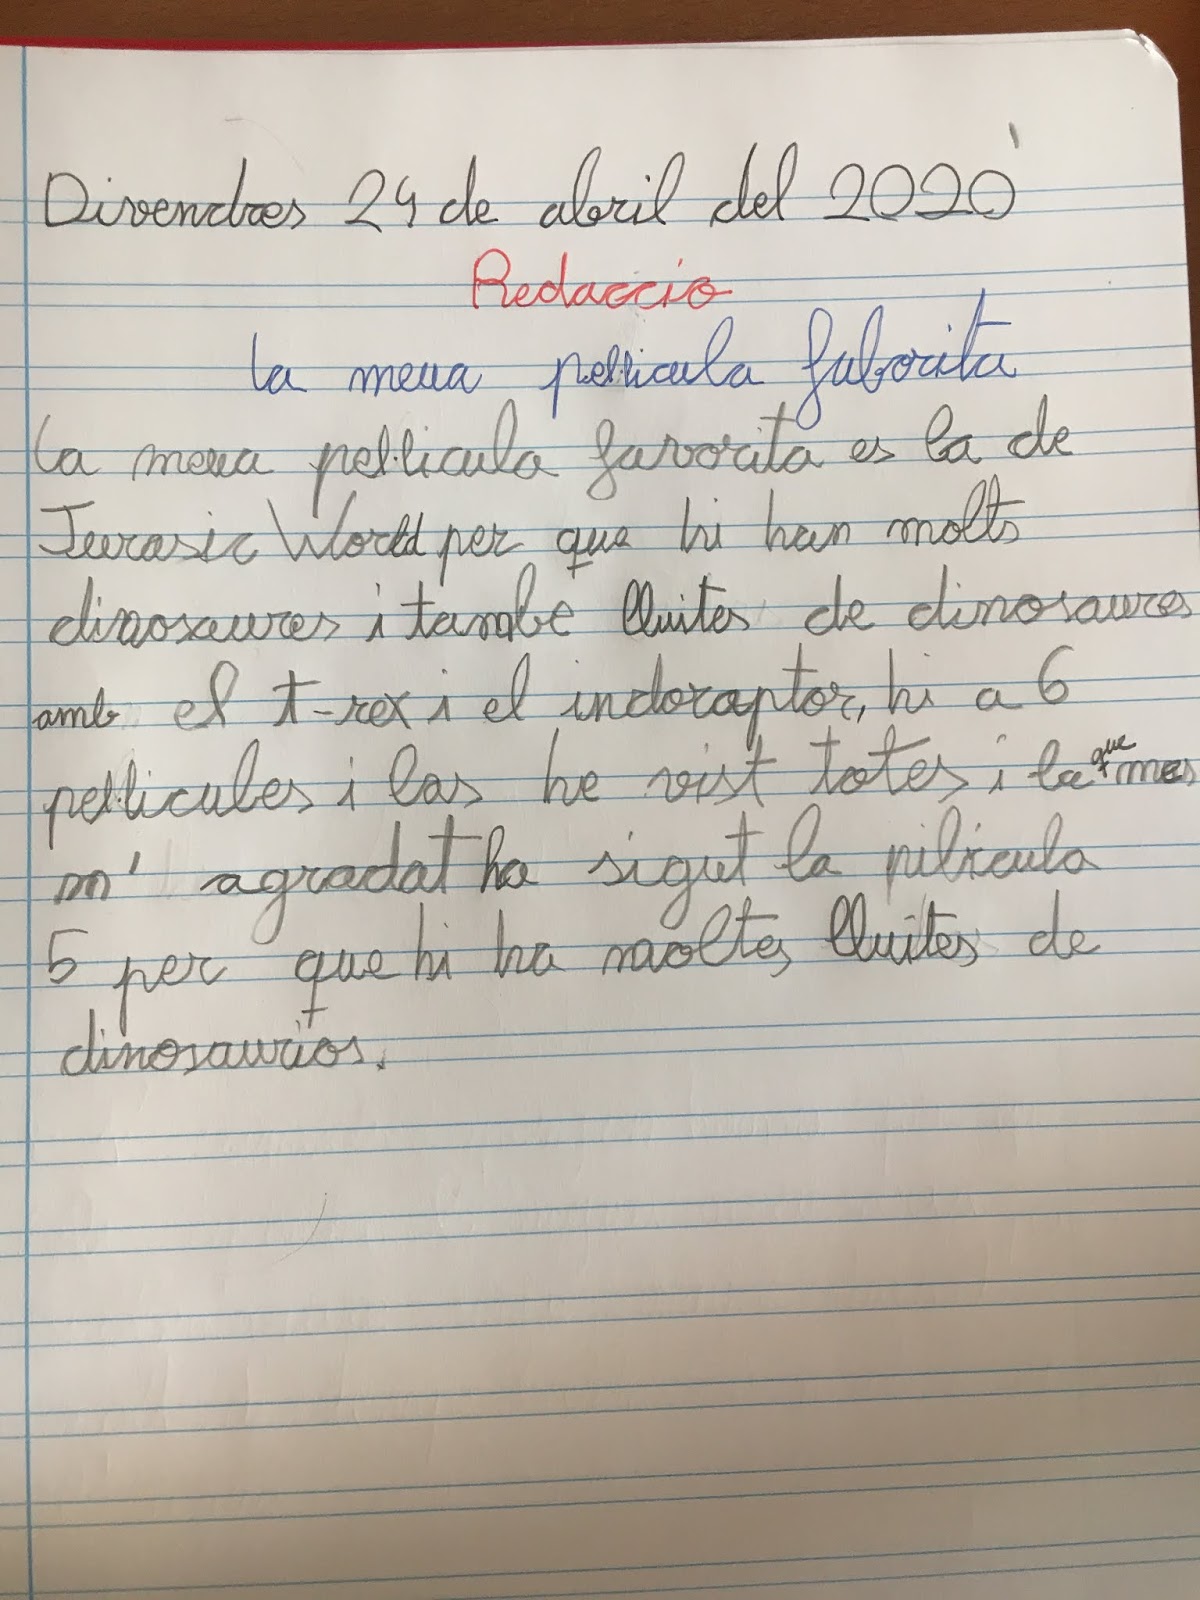 Divendres 24 de abril del 2020
Redaccio
la meua pel·licula faborita
la meua pel·licula favorita es la de
Jurasic World per que hi han molts
dinosaures i tambe lluites de dinosaures
amb el t-rex i el indoraptor, hi a 6
pel·licules i las he vist totes i la que mes
m' agradat ha sigut la pilicula
5 per que hi ha moltes lluites de
dinosaurios.